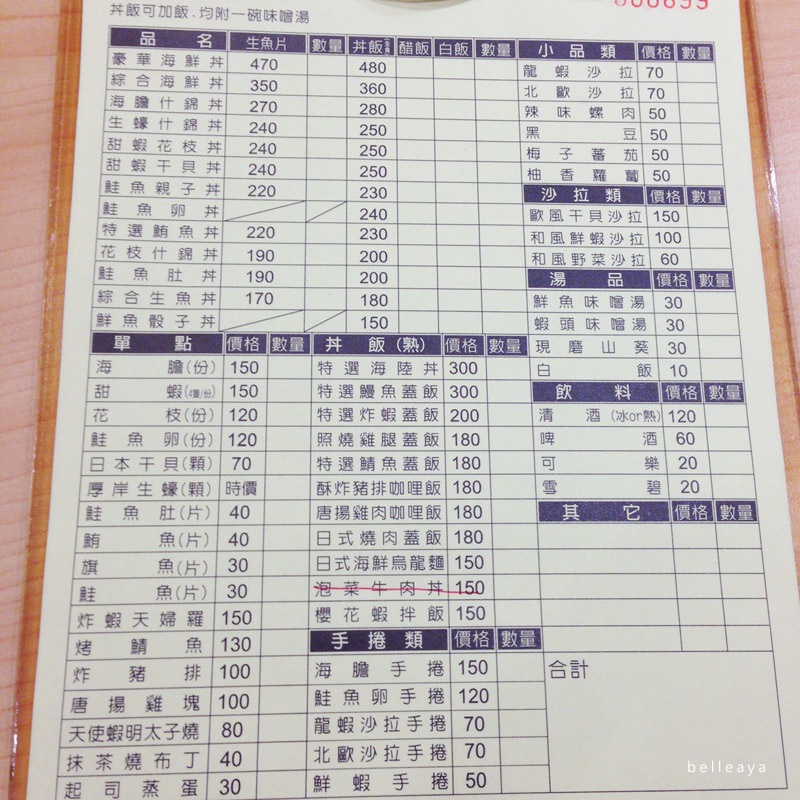 丼飯可加飯.均附一碗味噌湯
品名 生魚片 數量 丼飯 醋飯 白飯 數量
豪華海鮮丼 470 480
綜合海鮮丼 350 360
海膽什錦丼 270 280
生蠔什錦丼 240 250
甜蝦花枝丼 240 250
甜蝦干貝丼 240 250
鮭魚親子丼 220 230
鮭魚卵丼 240
特選鮪魚丼 220 230
花枝什錦丼 190 200
鮭魚肚丼 190 200
綜合生魚丼 170 180
鮮魚骰子丼 150
單點 價格 數量
海膽(份) 150
甜蝦(4隻/份) 150
花枝(份) 120
鮭魚卵(份) 120
日本干貝(顆) 70
厚岸生蠔(顆) 時價
鮭魚肚(片) 40
鮪魚(片) 40
旗魚(片) 30
鮭魚(片) 30
炸蝦天婦羅 150
烤鯖魚 130
炸豬排 100
唐揚雞塊 100
天使蝦明太子燒 80
抹茶燒布丁 40
起司蒸蛋 30
丼飯(熟) 價格 數量
特選海陸丼 300
特選鰻魚蓋飯 300
特選炸蝦蓋飯 200
照燒雞腿蓋飯 180
特選鯖魚蓋飯 180
酥炸豬排咖哩飯 180
唐揚雞肉咖哩飯 180
日式燒肉蓋飯 180
日式海鮮烏龍麵 150
泡菜牛肉丼 150
櫻花蝦拌飯 150
手捲類 價格 數量
海膽手捲 150
鮭魚卵手捲 120
龍蝦沙拉手捲 70
北歐沙拉手捲 70
鮮蝦手捲 50
小品類 價格 數量
龍蝦沙拉 70
北歐沙拉 70
辣味螺肉 50
黑豆 50
梅子蕃茄 50
柚香蘿蔔 50
沙拉類 價格 數量
歐風干貝沙拉 150
和風鮮蝦沙拉 100
和風野菜沙拉 60
湯品 價格 數量
鮮魚味噌湯 30
蝦頭味噌湯 30
現磨山葵 30
白飯 10
飲料 價格 數量
清酒(冰or熱) 120
啤酒 60
可樂 20
雪碧 20
其它 價格 數量
合計
belleaya